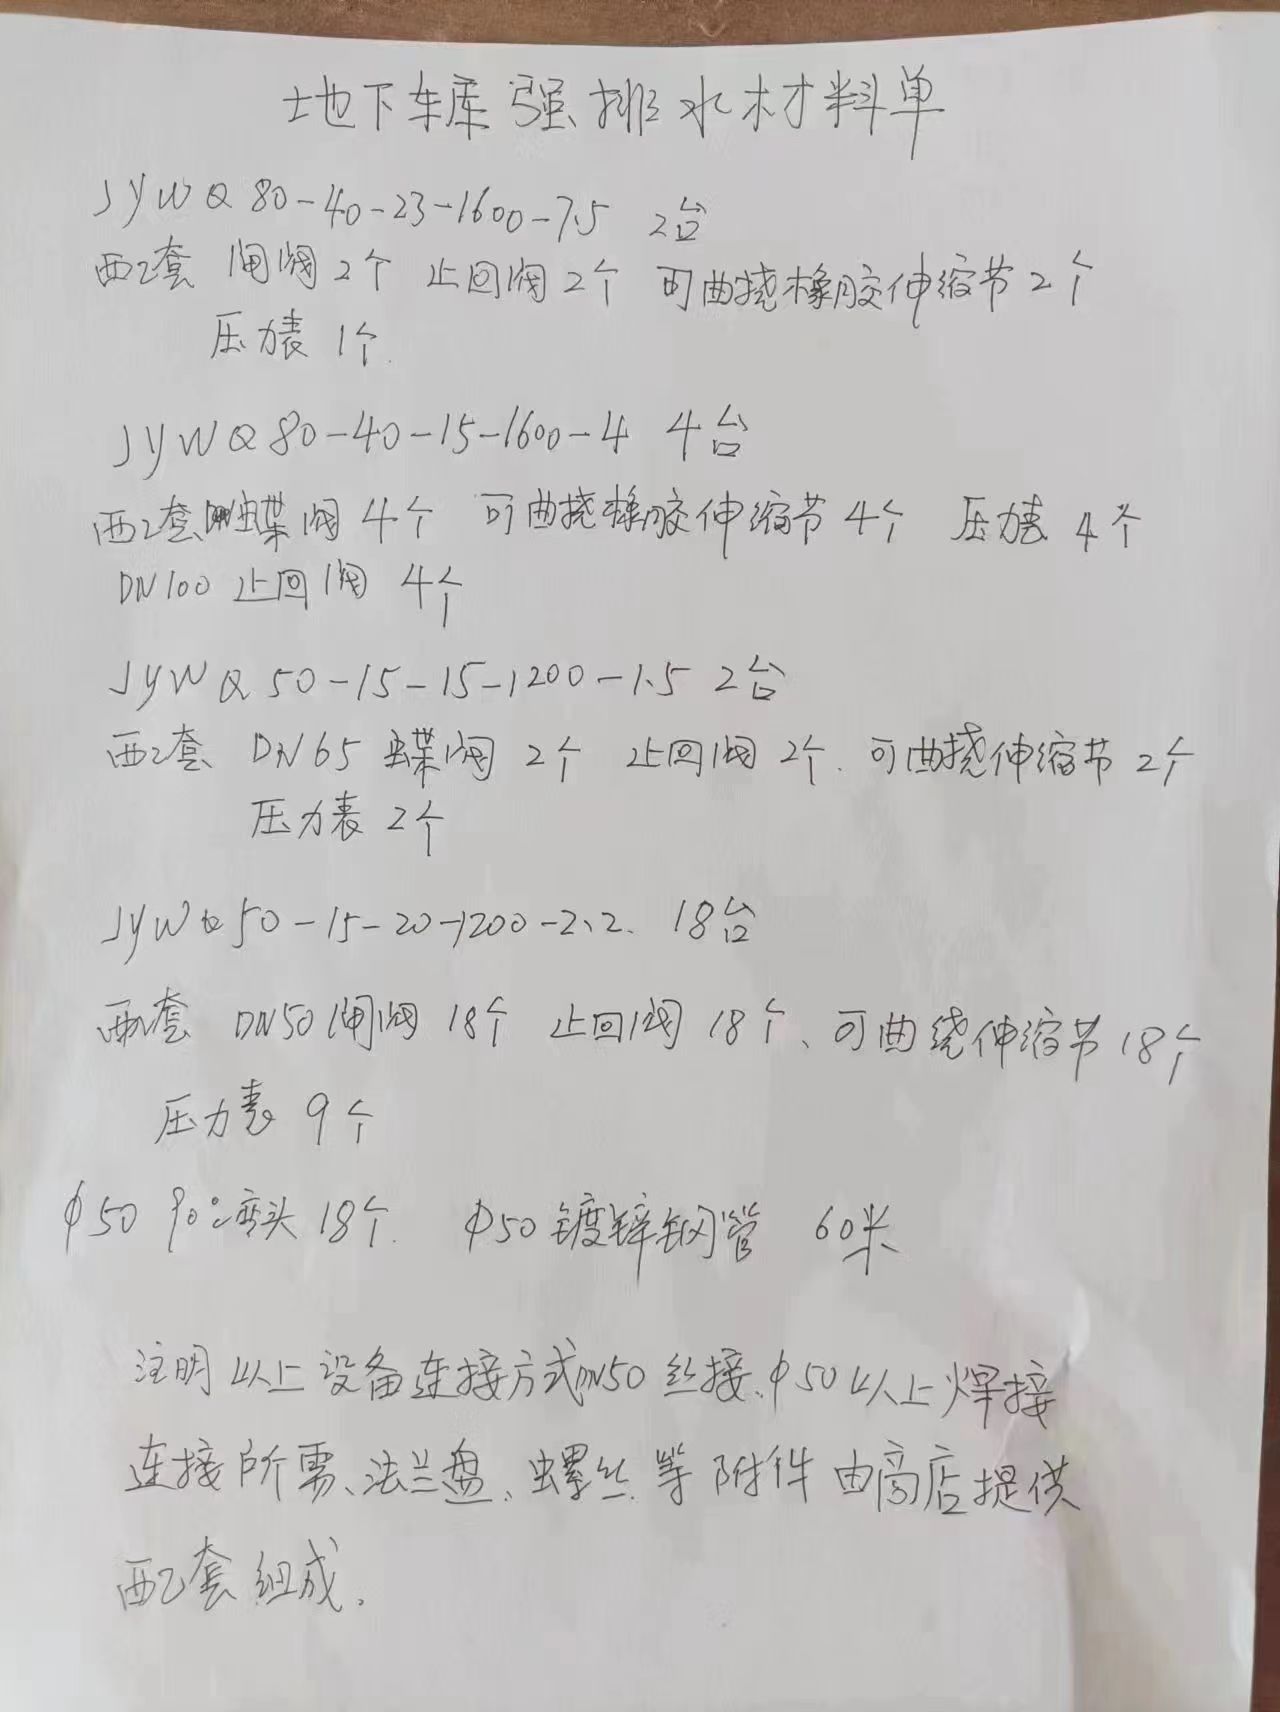 地下车库强排水材料单
JYWQ80-40-23-1600-7.5 2台
配套 闸阀2个 止回阀2个 可曲挠橡胶伸缩节2个
压力表1个.
JYWQ80-40-15-1600-4 4台
配套 蝶阀4个 可曲挠橡胶伸缩节4个 压力表4个
DN100止回阀 4个
JYWQ50-15-15-1200-1.5 2台
配套 DN65蝶阀2个 止回阀2个、可曲挠伸缩节2个
压力表2个
JYWQ50-15-20-1200-2.2. 18台
配套 DN50闸阀18个 止回阀18个、可曲绕伸缩节18个
压力表9个
φ50 90°弯头18个. φ50镀锌钢管 60米
注明以上设备连接方式DN50丝接、φ50以上焊接
连接所需、法兰盘、螺丝等附件由商店提供
配套组成.